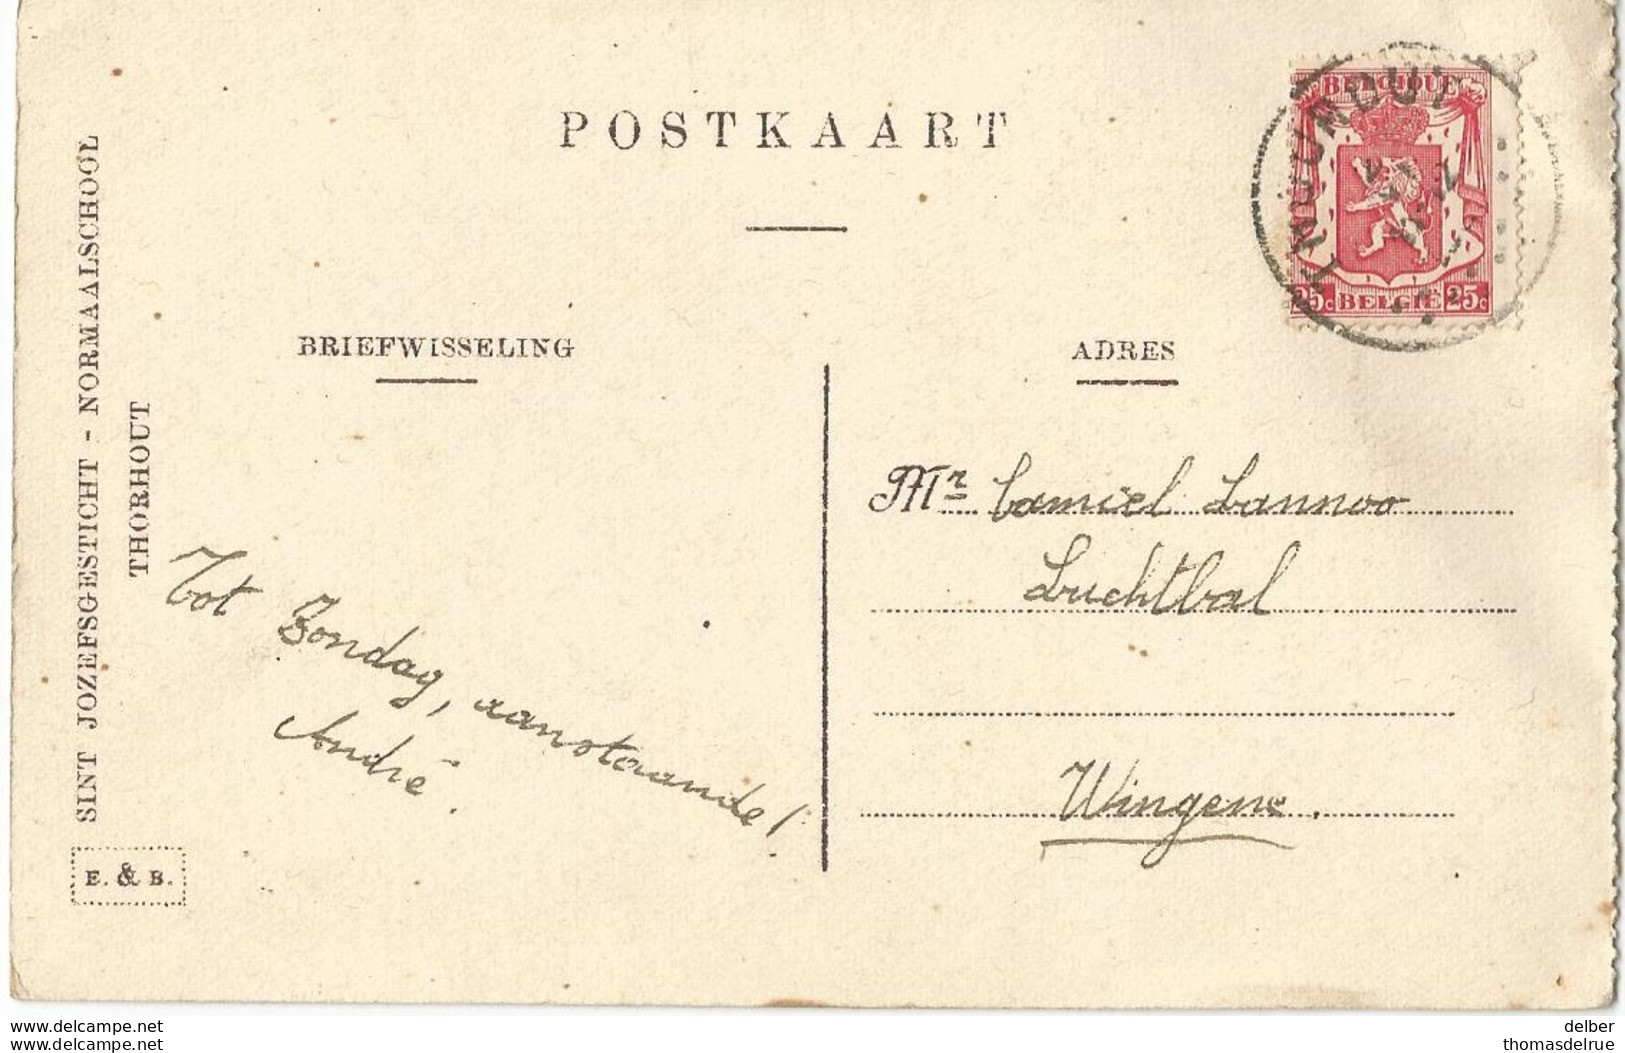 POSTKAART
BELGIQUE
25c BELGIË 25c
BRIEFWISSELING
ADRES
SINT JOZEFSGESTICHT - NORMAALSCHOOL
THORHOUT
Tot Zondag, aanstaande!
André.
Mr Camiel Lannoo
Luchtbal
Wingene.
E. & B.
www.delcampe.net
www.delcampe.net
delber
thomasdelrue